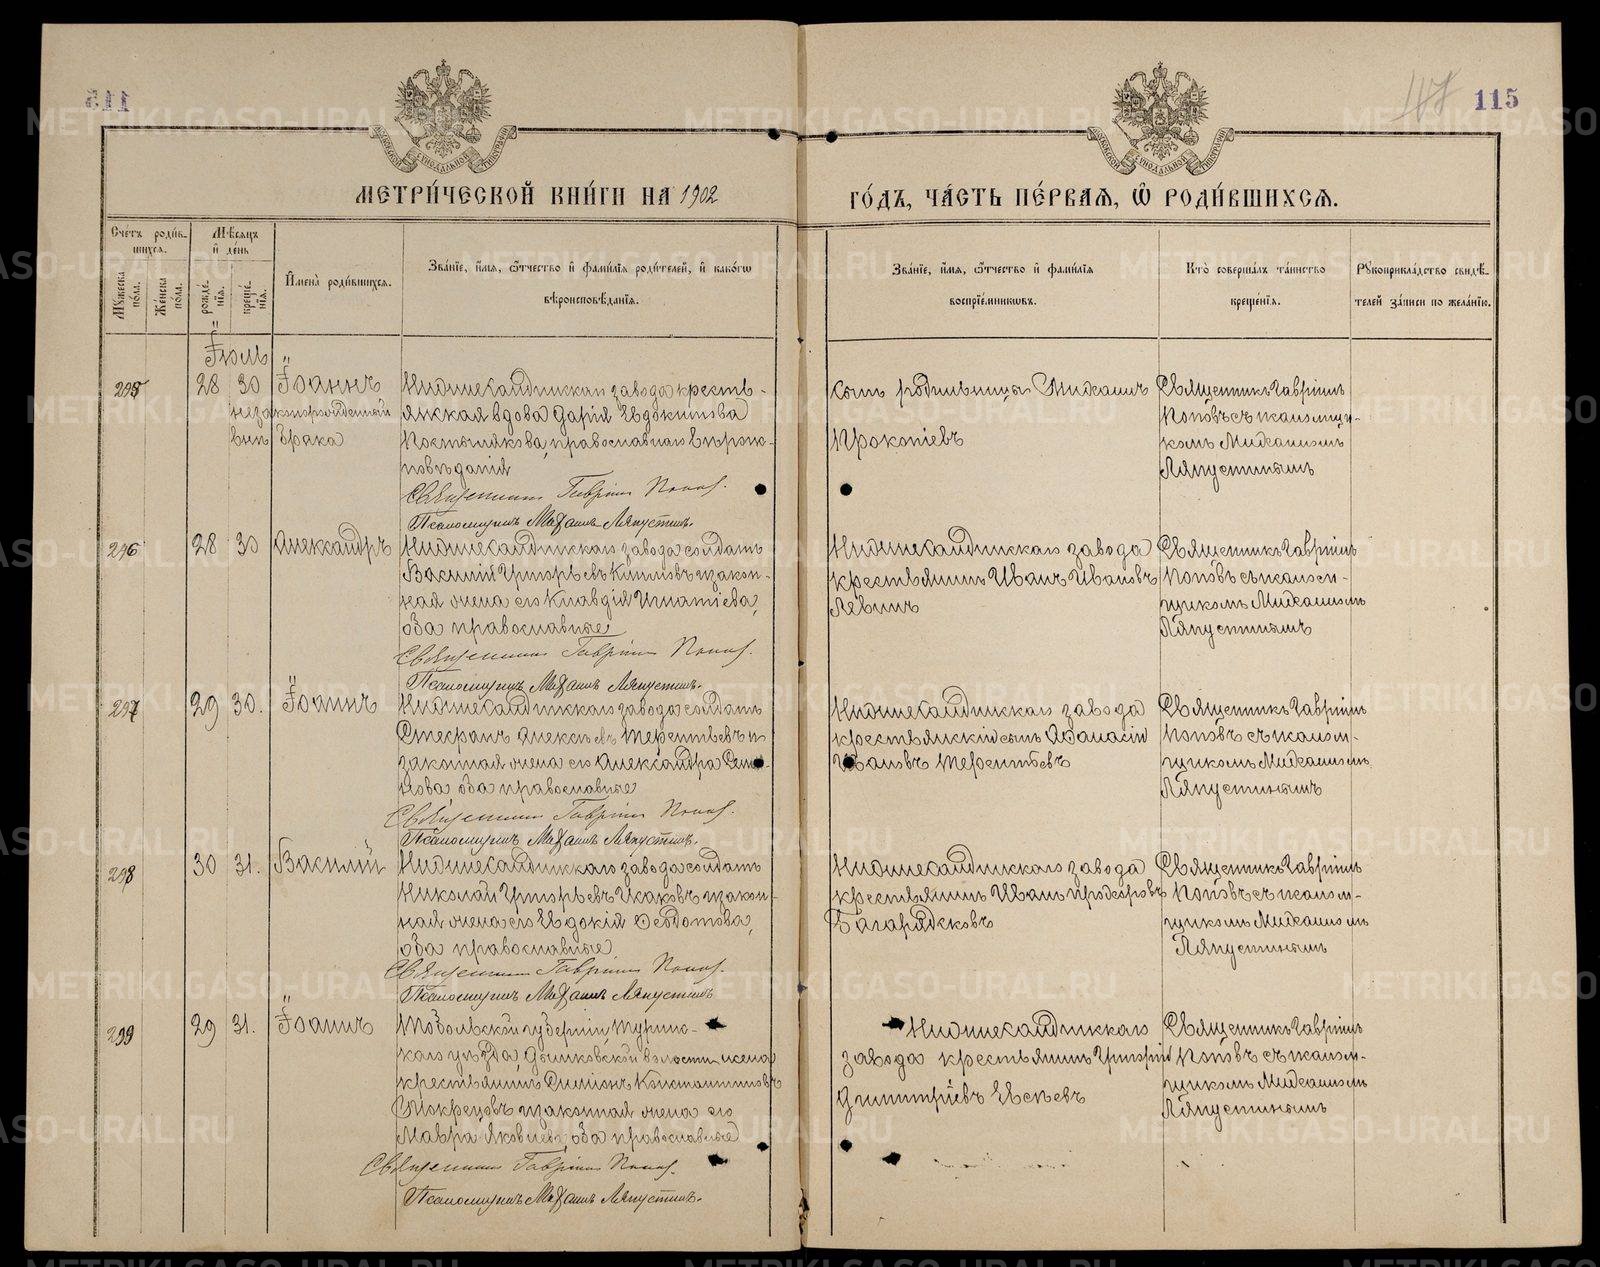 115
115
МЕТРИ́ЧЕСКОЙ КНИ́ГИ НА 1902
ГО́ДЪ, ЧА́СТЬ ПЕ́РВАѦ, Ѽ РОДИ́ВШИХСѦ.
Счетъ роди́в-
шихсѧ.
Мꙋжеска
по́ла.
Же́нска
по́ла.
Мѣ́сѧцъ
и҆ де́нь
рожде́-
нїѧ.
креще́-
нїѧ.
И҆мена̀ роди́вшихсѧ.
Зва́нїе, и҆́мѧ, ѻ҆́тчество и҆ фами́лїѧ роди́телей, и҆ како́гѡ
вѣроисповѣ́данїѧ.
Зва́нїе, и҆́мѧ, ѻ҆́тчество и҆ фами́лїѧ
воспрїе́мникѡвъ.
Кто̀ соверша́лъ та́инство
креще́нїѧ.
Рꙋкоприкла́дство свидѣ́-
телей за́писи по жела́нїю.
Іюль
295 28 30 Іоаннъ
незаконнорожденный
внѣ брака
крестъ-
янская вдова Дарія Евдокимова
Постылякова, православнаго вѣроис-
повѣданія
Священникъ Гавріилъ Поповъ.
Псаломщикъ Михаилъ Ляпустинъ.
сынъ родильницы Михаилъ
Прокопіевъ
Священникъ Гавріилъ
Поповъ съ псаломщи-
комъ Михаиломъ
Ляпустинымъ
296 28 30 Александръ
завода солдатъ
Василій Григорьевъ и закон-
ная жена его Клавдія Игнатіева,
оба православные
Священникъ Гавріилъ Поповъ.
Псаломщикъ Михаилъ Ляпустинъ.
завода
крестьянинъ Иванъ Ивановъ
Левинъ
Священникъ Гавріилъ
Поповъ съ псалом-
щикомъ Михаиломъ
Ляпустинымъ
297 29 30. Іоаннъ
завода солдатъ
Стефанъ Алексѣевъ Терентьевъ и
законная жена его Александра
оба православные
Священникъ Гавріилъ Поповъ.
Псаломщикъ Михаилъ Ляпустинъ.
завода
крестьянскій сынъ Аѳанасій
Ивановъ Терентьевъ
Священникъ Гавріилъ
Поповъ съ псалом-
щикомъ Михаиломъ
Ляпустинымъ
298 30 31. Василій
завода солдатъ
Николай Григорьевъ Исаковъ и закон-
ная жена его Евдокія Ѳедотова,
оба православные
Священникъ Гавріилъ Поповъ.
Псаломщикъ Михаилъ Ляпустинъ
завода
крестьянинъ Иванъ Прохоровъ
Багарядсковъ
Священникъ Гавріилъ
Поповъ съ псалом-
щикомъ Михаиломъ
Ляпустинымъ
299 29 31. Іоаннъ
Тобольской губерніи, Турин-
каго уѣзда, волости
крестьянинъ Симіонъ Константиновъ
и законная жена его
Мавра Яковлева, оба православные
Священникъ Гавріилъ Поповъ.
Псаломщикъ Михаилъ Ляпустинъ.
завода крестьянинъ Григорій
Димитріевъ Евсѣевъ
Священникъ Гавріилъ
Поповъ съ псалом-
щикомъ Михаиломъ
Ляпустинымъ
METRIKI.GASO-URAL.RU